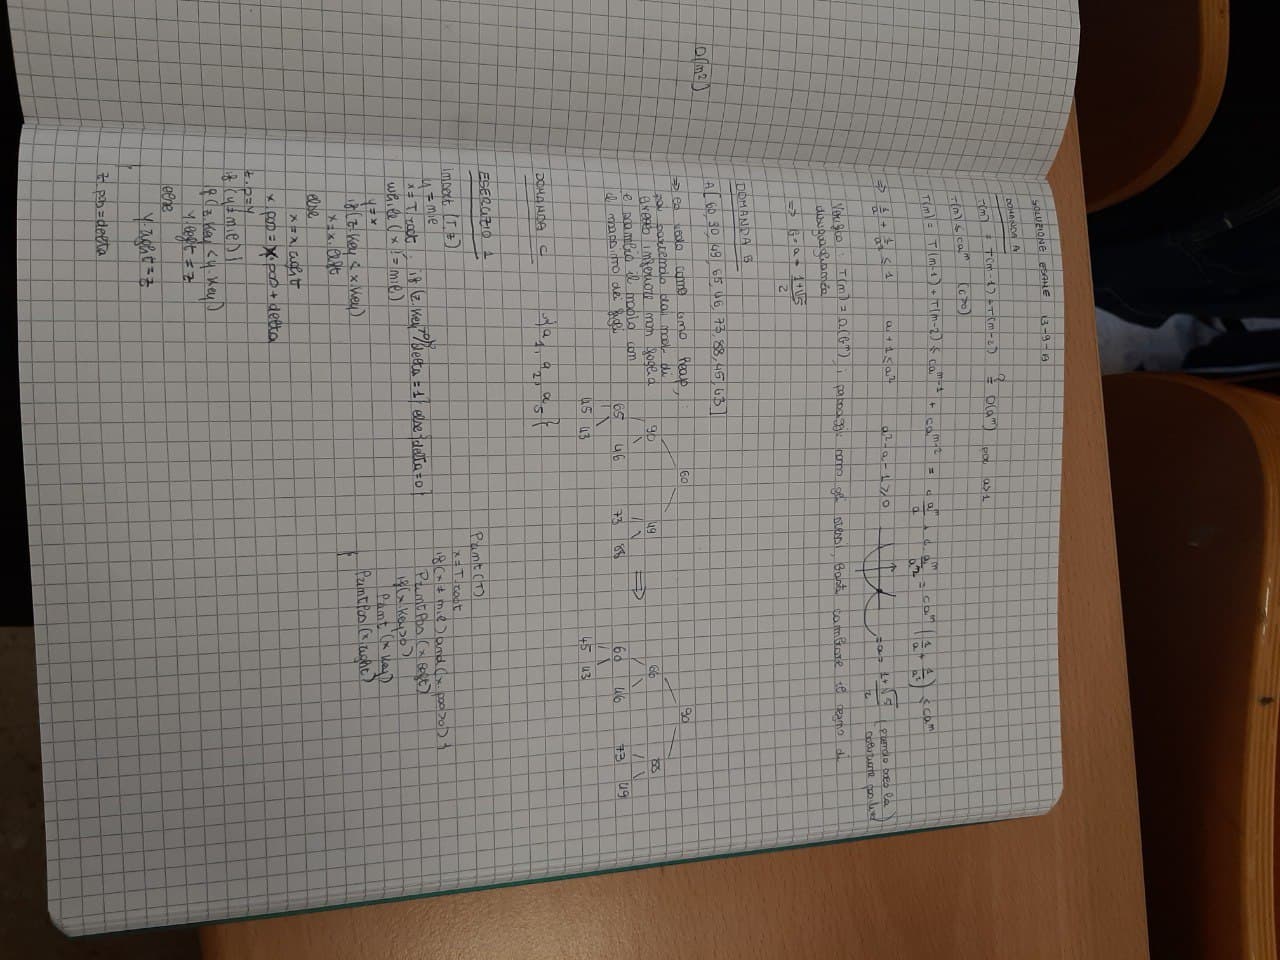 O(n²)
SOLUZIONE ESAME 13-9-19
DOMANDA A
T(n) = T(n-1) + T(n-2) ?= O(aⁿ) per a>1
T(n) ≤ caⁿ (c>0)
T(n) = T(n-1) + T(n-2) ≤ caⁿ⁻¹ + caⁿ⁻² = c aⁿ/a + c aⁿ/a² = caⁿ (1/a + 1/a²) ≤ caⁿ
⇒ 1/a + 1/a² ≤ 1 a+1 ≤ a² a²-a-1 ≥ 0 ⇒ a = (1+√5)/2 (prendo solo la
soluzione positiva)
Verifico: T(n) = Ω(bⁿ), i passaggi sono gli stessi, basta cambiare il segno di
disuguaglianza
⇒ b = a = (1+√5)/2
DOMANDA B
A[60, 90, 49, 65, 46, 73, 88, 45, 43]
⇒ lo vedo come uno heap,
poi partendo dai nodi di
livello inferiore non foglia
e scambio il nodo con
il massimo dei figli
60
90 49
65 46 73 88
45 43
⇒
90
66 88
60 46 73 49
45 43
DOMANDA C {a₁, a₂, a₅}
ESERCIZIO 1
insert (T, z)
y = nil
x = T.root ; if (z.key >0) {delta = 1} else {delta=0}
while (x != nil)
y = x
if (z.key < x.key)
x = x.left
else
x = x.right
x.pos = x.pos + delta
z.p = y
if (y ≠ nil) {
if (z.key < y.key)
y.left = z
else
y.right = z
}
z.pos = delta
Print (T)
x = T.root
if (x ≠ nil) and (x.pos>0) {
PrintPos (x.left)
if (x.key>0)
Print (x.key)
PrintPos (x.right)
}